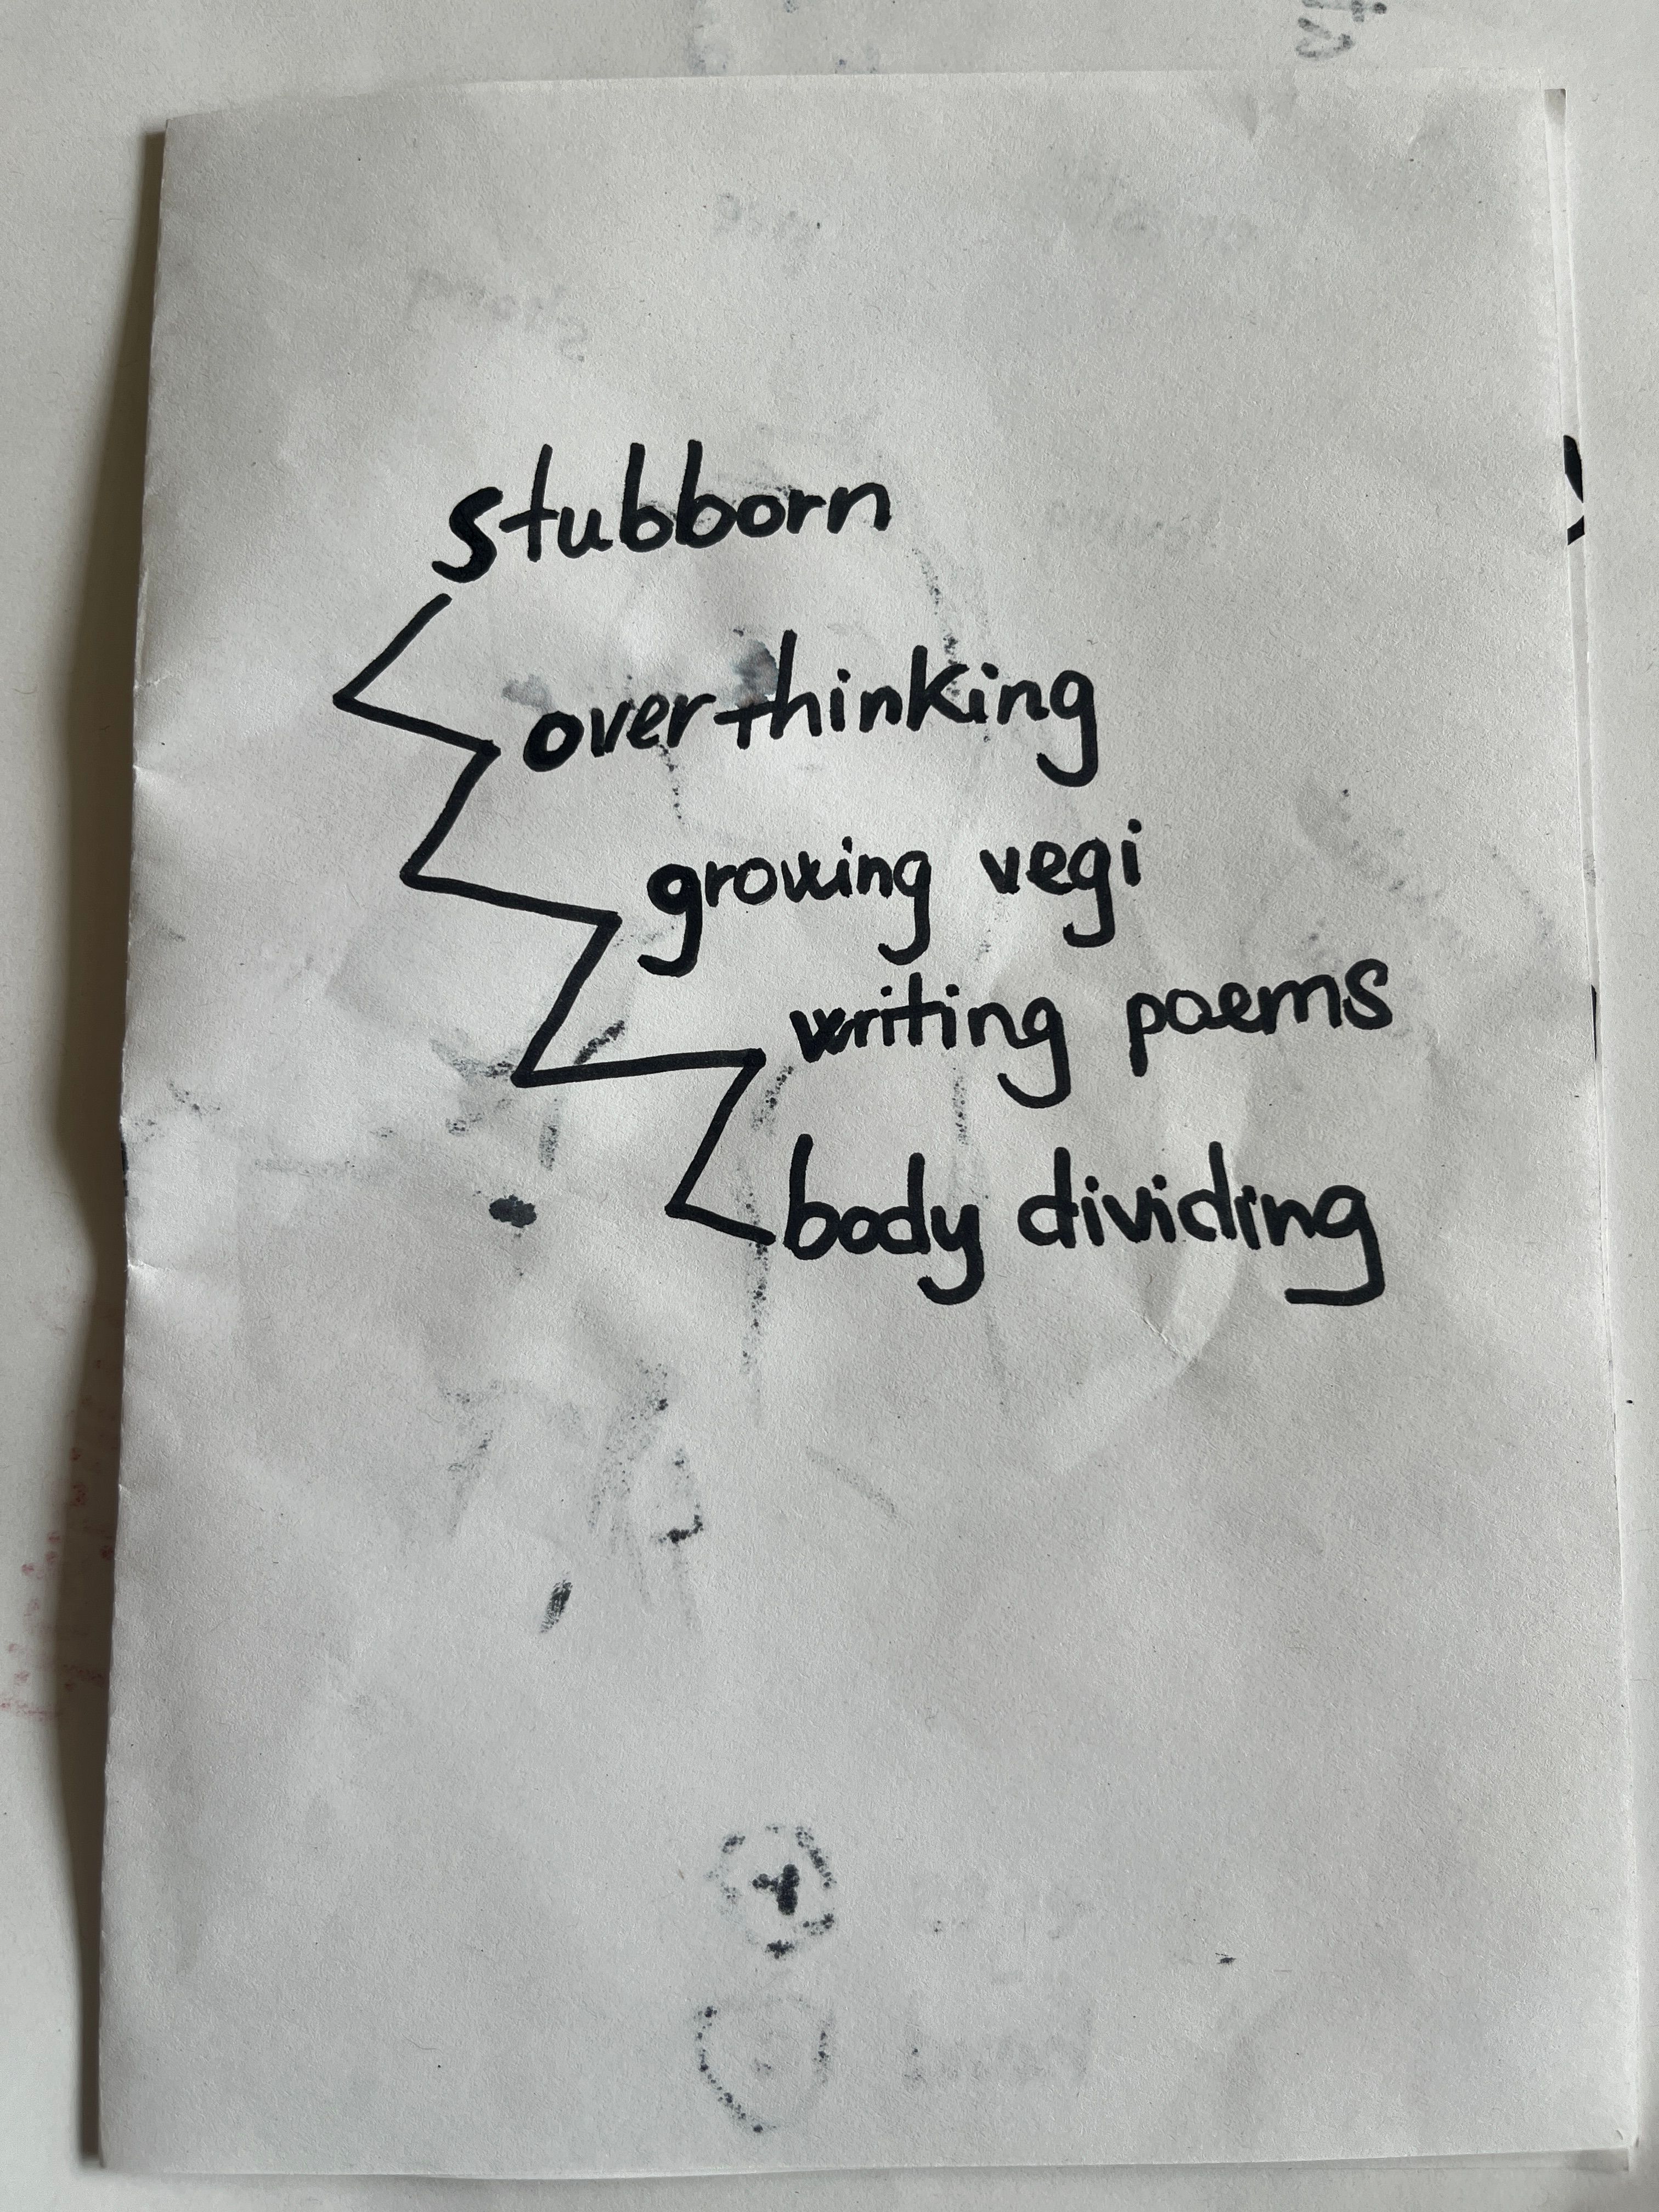 stubborn
overthinking
growing vegi
writing poems
body dividing